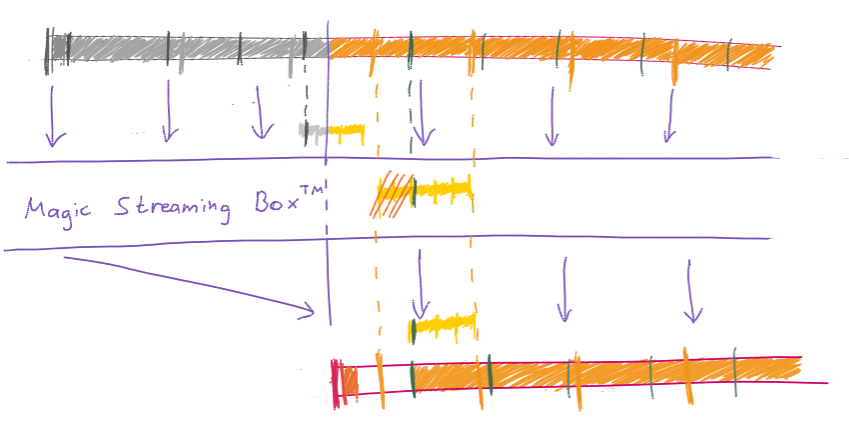 Magic Streaming Box™